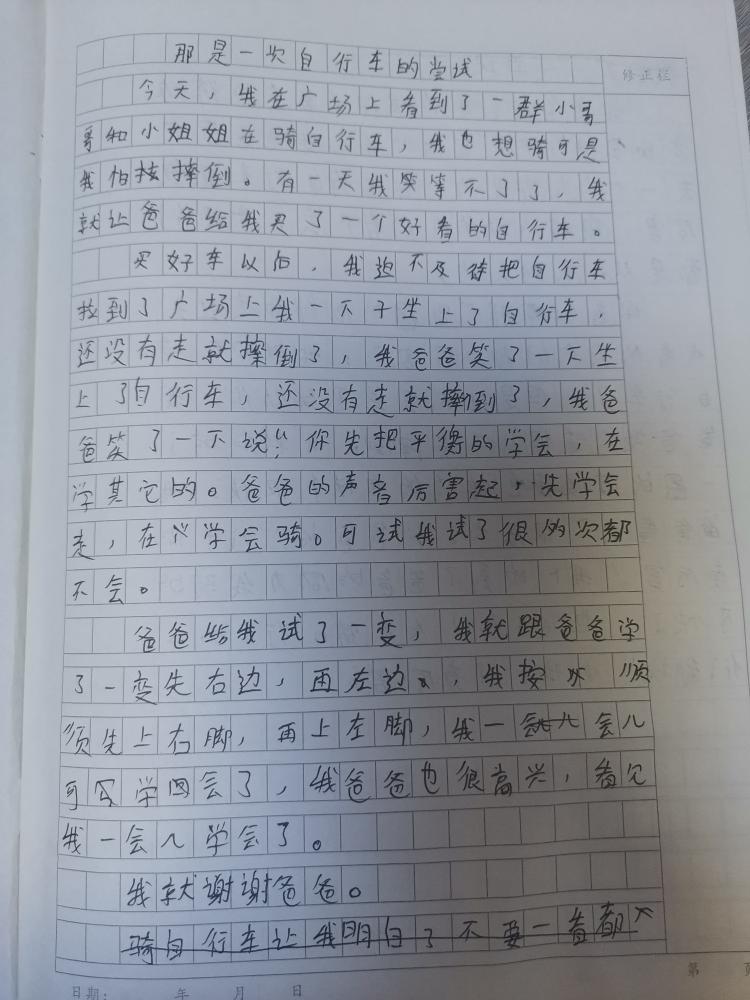 那是一次自行车的尝试
修正栏
今天，我在广场上看到了一群小哥
哥和小姐姐在骑自行车，我也想骑可是
我怕摔倒。有一天我笑等不了了，我
就让爸爸给我买了一个好看的自行车。
买好车以后，我迫不及待把自行车
找到了广场上我一下子坐上了自行车，
还没有走就摔倒了，我爸爸笑了一下坐
上了自行车，还没有走就摔倒了，我爸
爸笑了一下说：“你先把平衡的学会，在
学其它的。爸爸的声音厉害起，先学会
走，在学会骑。可试我试了很多次都
不会。
爸爸给我试了一变，我就跟爸爸学
了一变先右边，再左边，我按顺
须先上右脚，再上左脚，我一会儿
可学会了，我爸爸也很高兴，看见
我一会儿学会了。
我就谢谢爸爸。
骑自行车让我明白了不要一看都
第 页
日期： 年 月 日